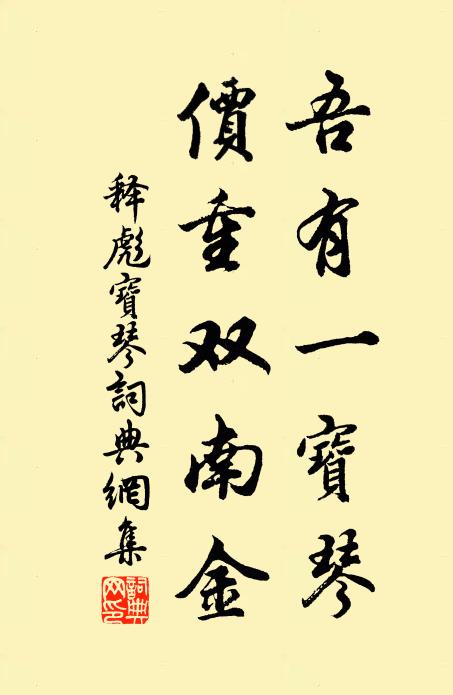 吾有一寶琴
價重双南金
释彪寶琴詞典網集
詞典網印